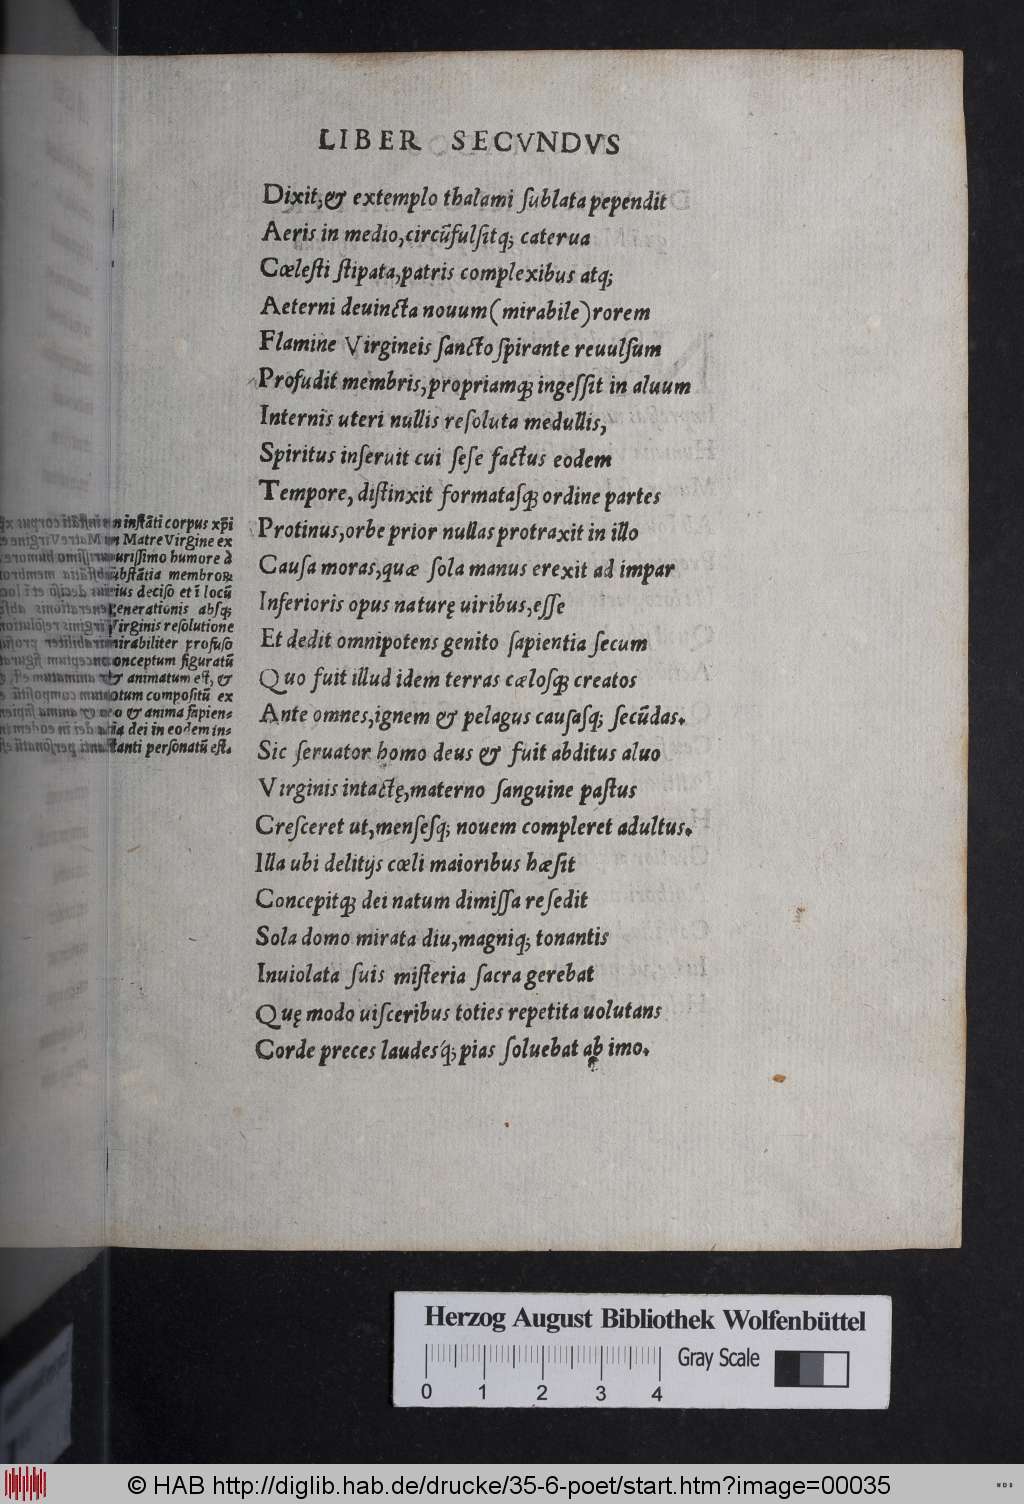 LIBER SECVNDVS
Dixit,& extemplo thalami ſublata pependit
Aeris in medio,circũfulſitq; caterua
Cœleſti ſtipata,patris complexibus atq;
Aeterni deuincta nouum(mirabile)rorem
Flamine Virgineis ſancto ſpirante reuulſum
Profudit membris,propriamq; ingeſſit in aluum
Internis uteri nullis reſoluta medullis,
Spiritus inſeruit cui ſeſe factus eodem
Tempore, diſtinxit formataſq; ordine partes
Protinus,orbe prior nullas protraxit in illo
Cauſa moras,quæ ſola manus erexit ad impar
Inferioris opus naturę uiribus,eſſe
Et dedit omnipotens genito ſapientia ſecum
Quo fuit illud idem terras cæloſq; creatos
Ante omnes,ignem & pelagus cauſaſq; ſecũdas.
Sic ſeruator homo deus & fuit abditus aluo
Virginis intactę,materno ſanguine paſtus
Creſceret ut,menſeſq; nouem compleret adultus.
Illa ubi delitijs cœli maioribus hæſit
Concepitq; dei natum dimiſſa reſedit
Sola domo mirata diu,magniq; tonantis
Inuiolata ſuis miſteria ſacra gerebat
Quę modo uiſceribus toties repetita uolutans
Corde preces laudesq́; pias ſoluebat ab imo.
n inſtãti corpus xp̃i
n Matre Virgine ex
uriſſimo humore à
ubſtãtia membroꝝ
ius deciſo et ĩ locũ
generationis abſq;
Virginis reſolutione
mirabiliter profuſo
conceptum figuratũ
& animatum eſt, &
totum compoſitũ ex
eo & anima ſapien-
tia dei in eodem in-
ſtanti perſonatũ eſt.
Herzog August Bibliothek Wolfenbüttel
Gray Scale
0 1 2 3 4
© HAB http://diglib.hab.de/drucke/35-6-poet/start.htm?image=00035